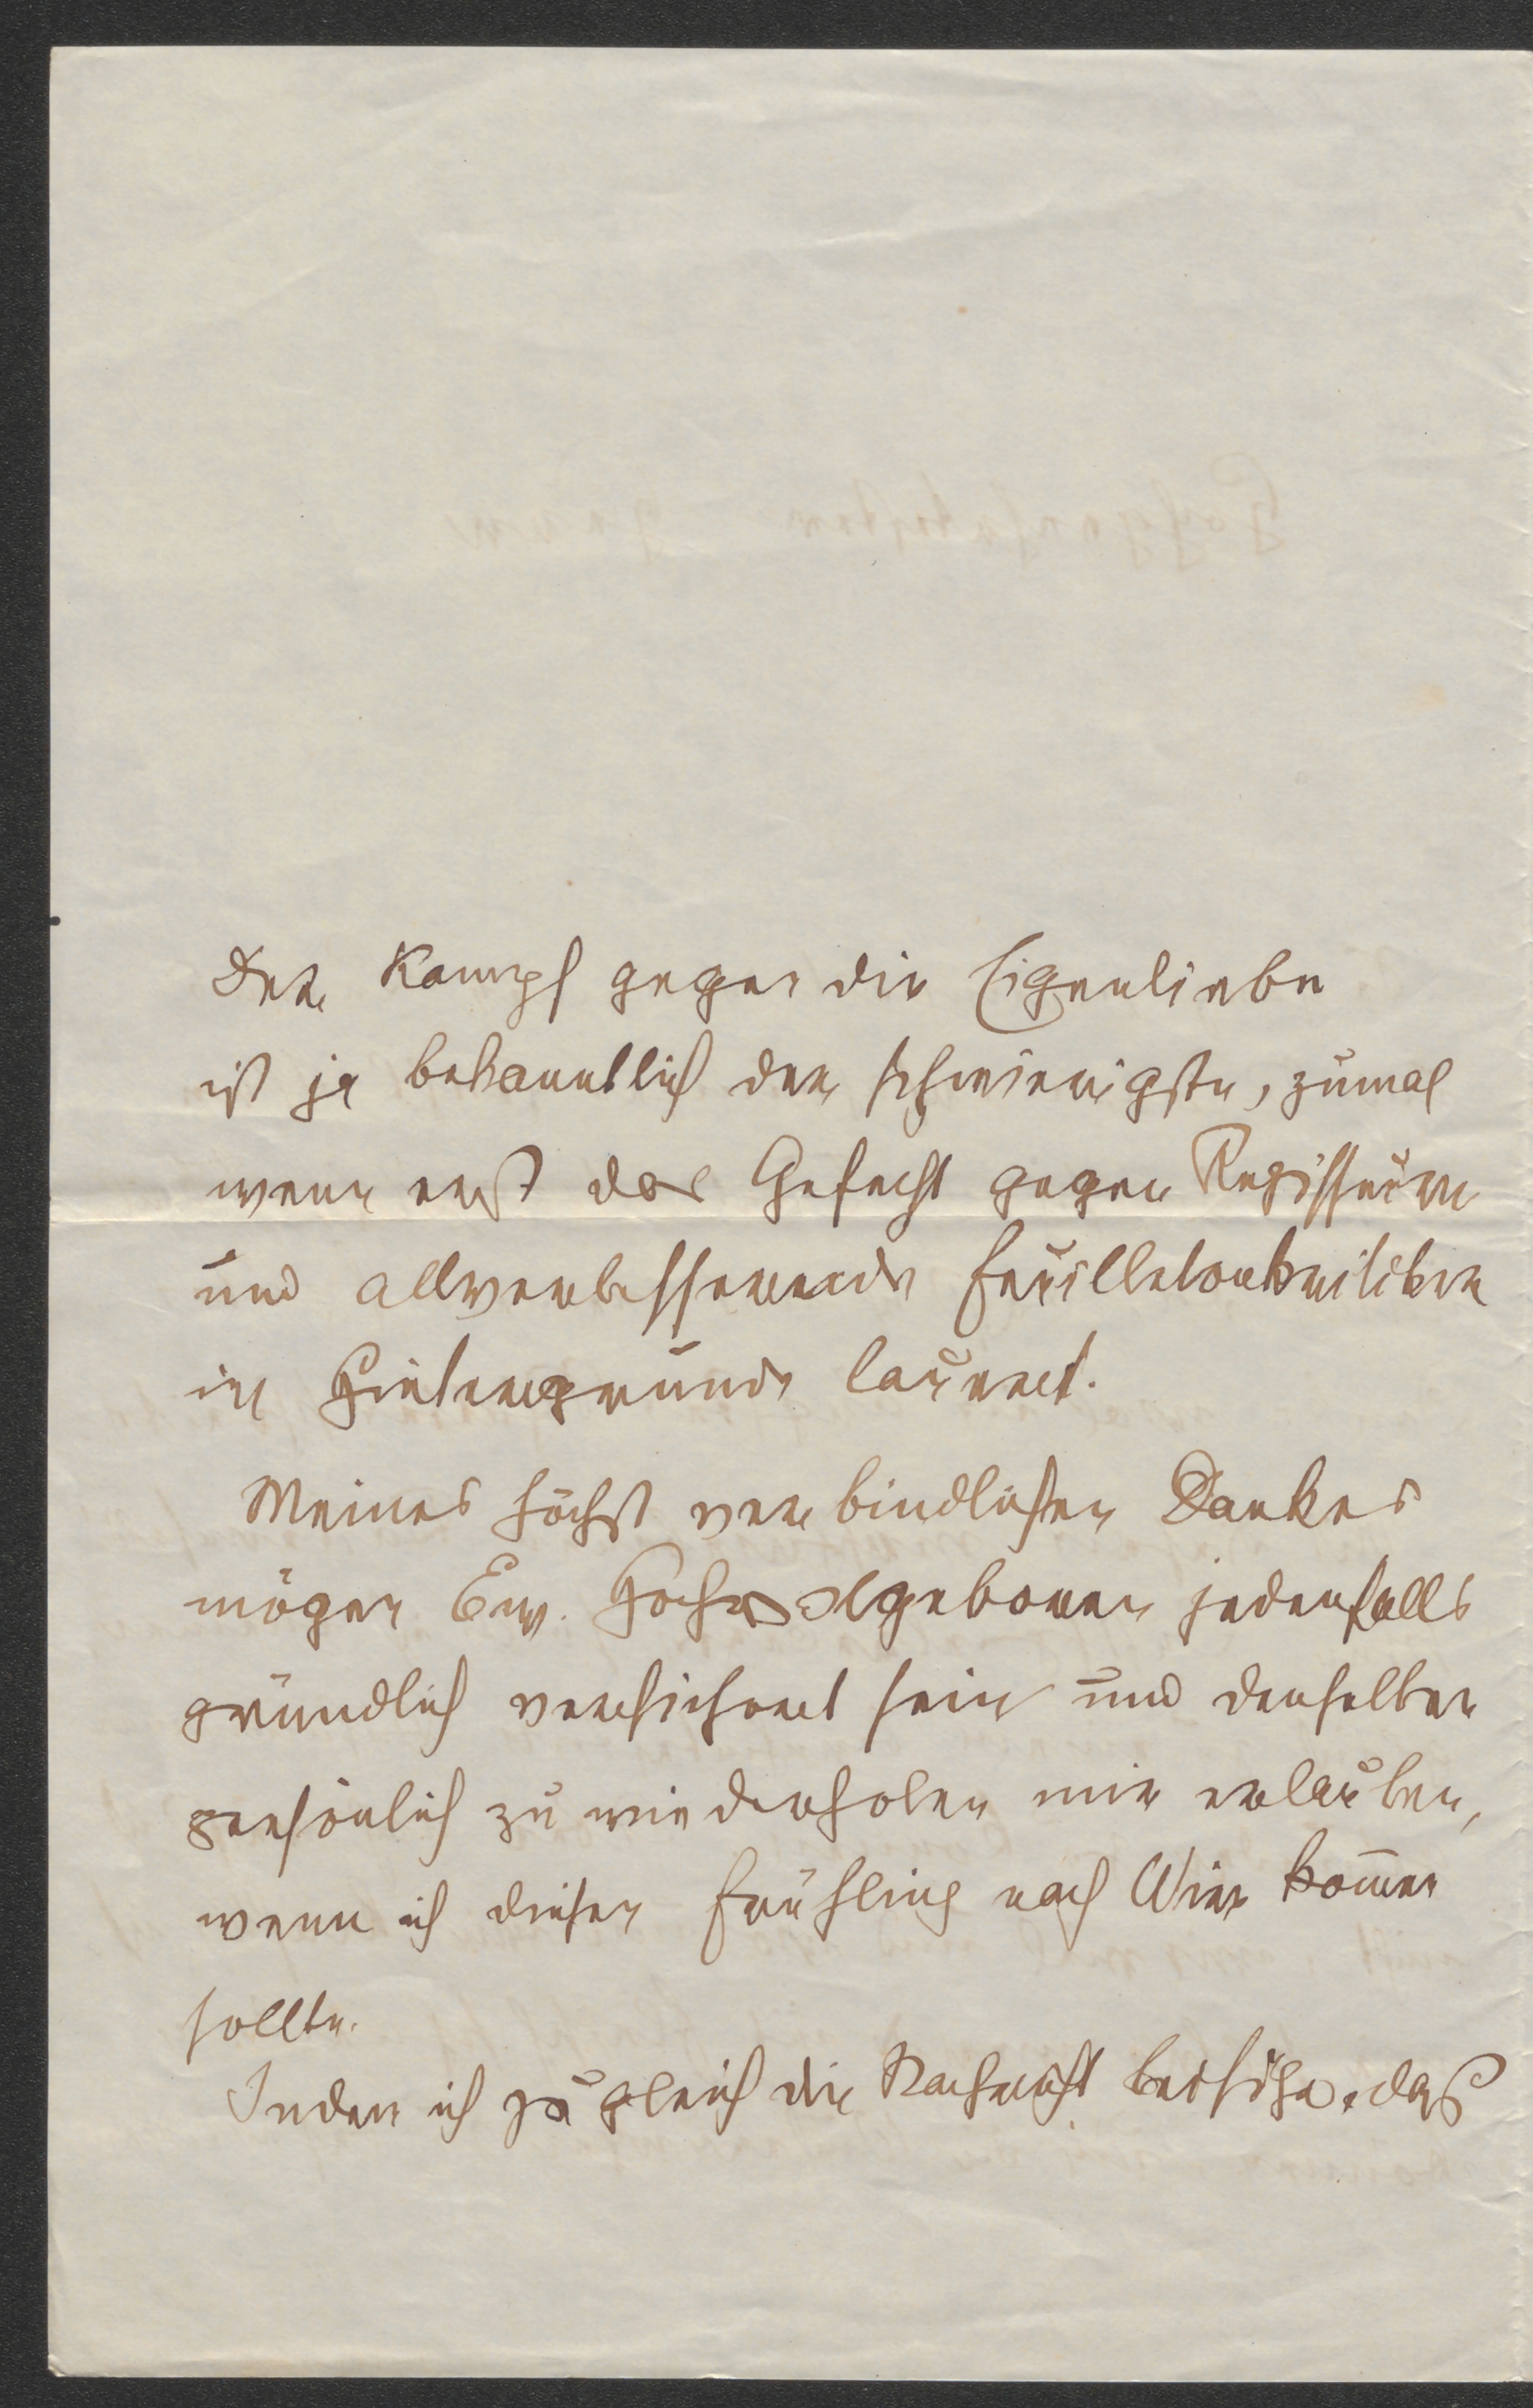 Der Kampf gegen die Eigenliebe
ist ja bekanntlich der schwierigste, zumal
wenn erst das Gefecht gegen Regisseure
und allverbessernde Feuilletonkritiker
im Hintergrunde lauert.
Meines höchst verbindlichen Dankes
mögen Ew. Hochwolgeboren jedenfalls
gründlich versichert sein und denselben
persönlich zu wiederholen mir erlauben,
wenn ich diesen Frühling nach Wien kom̄en
sollte.
Indem ich zugleich die Nachricht beifüge, daß